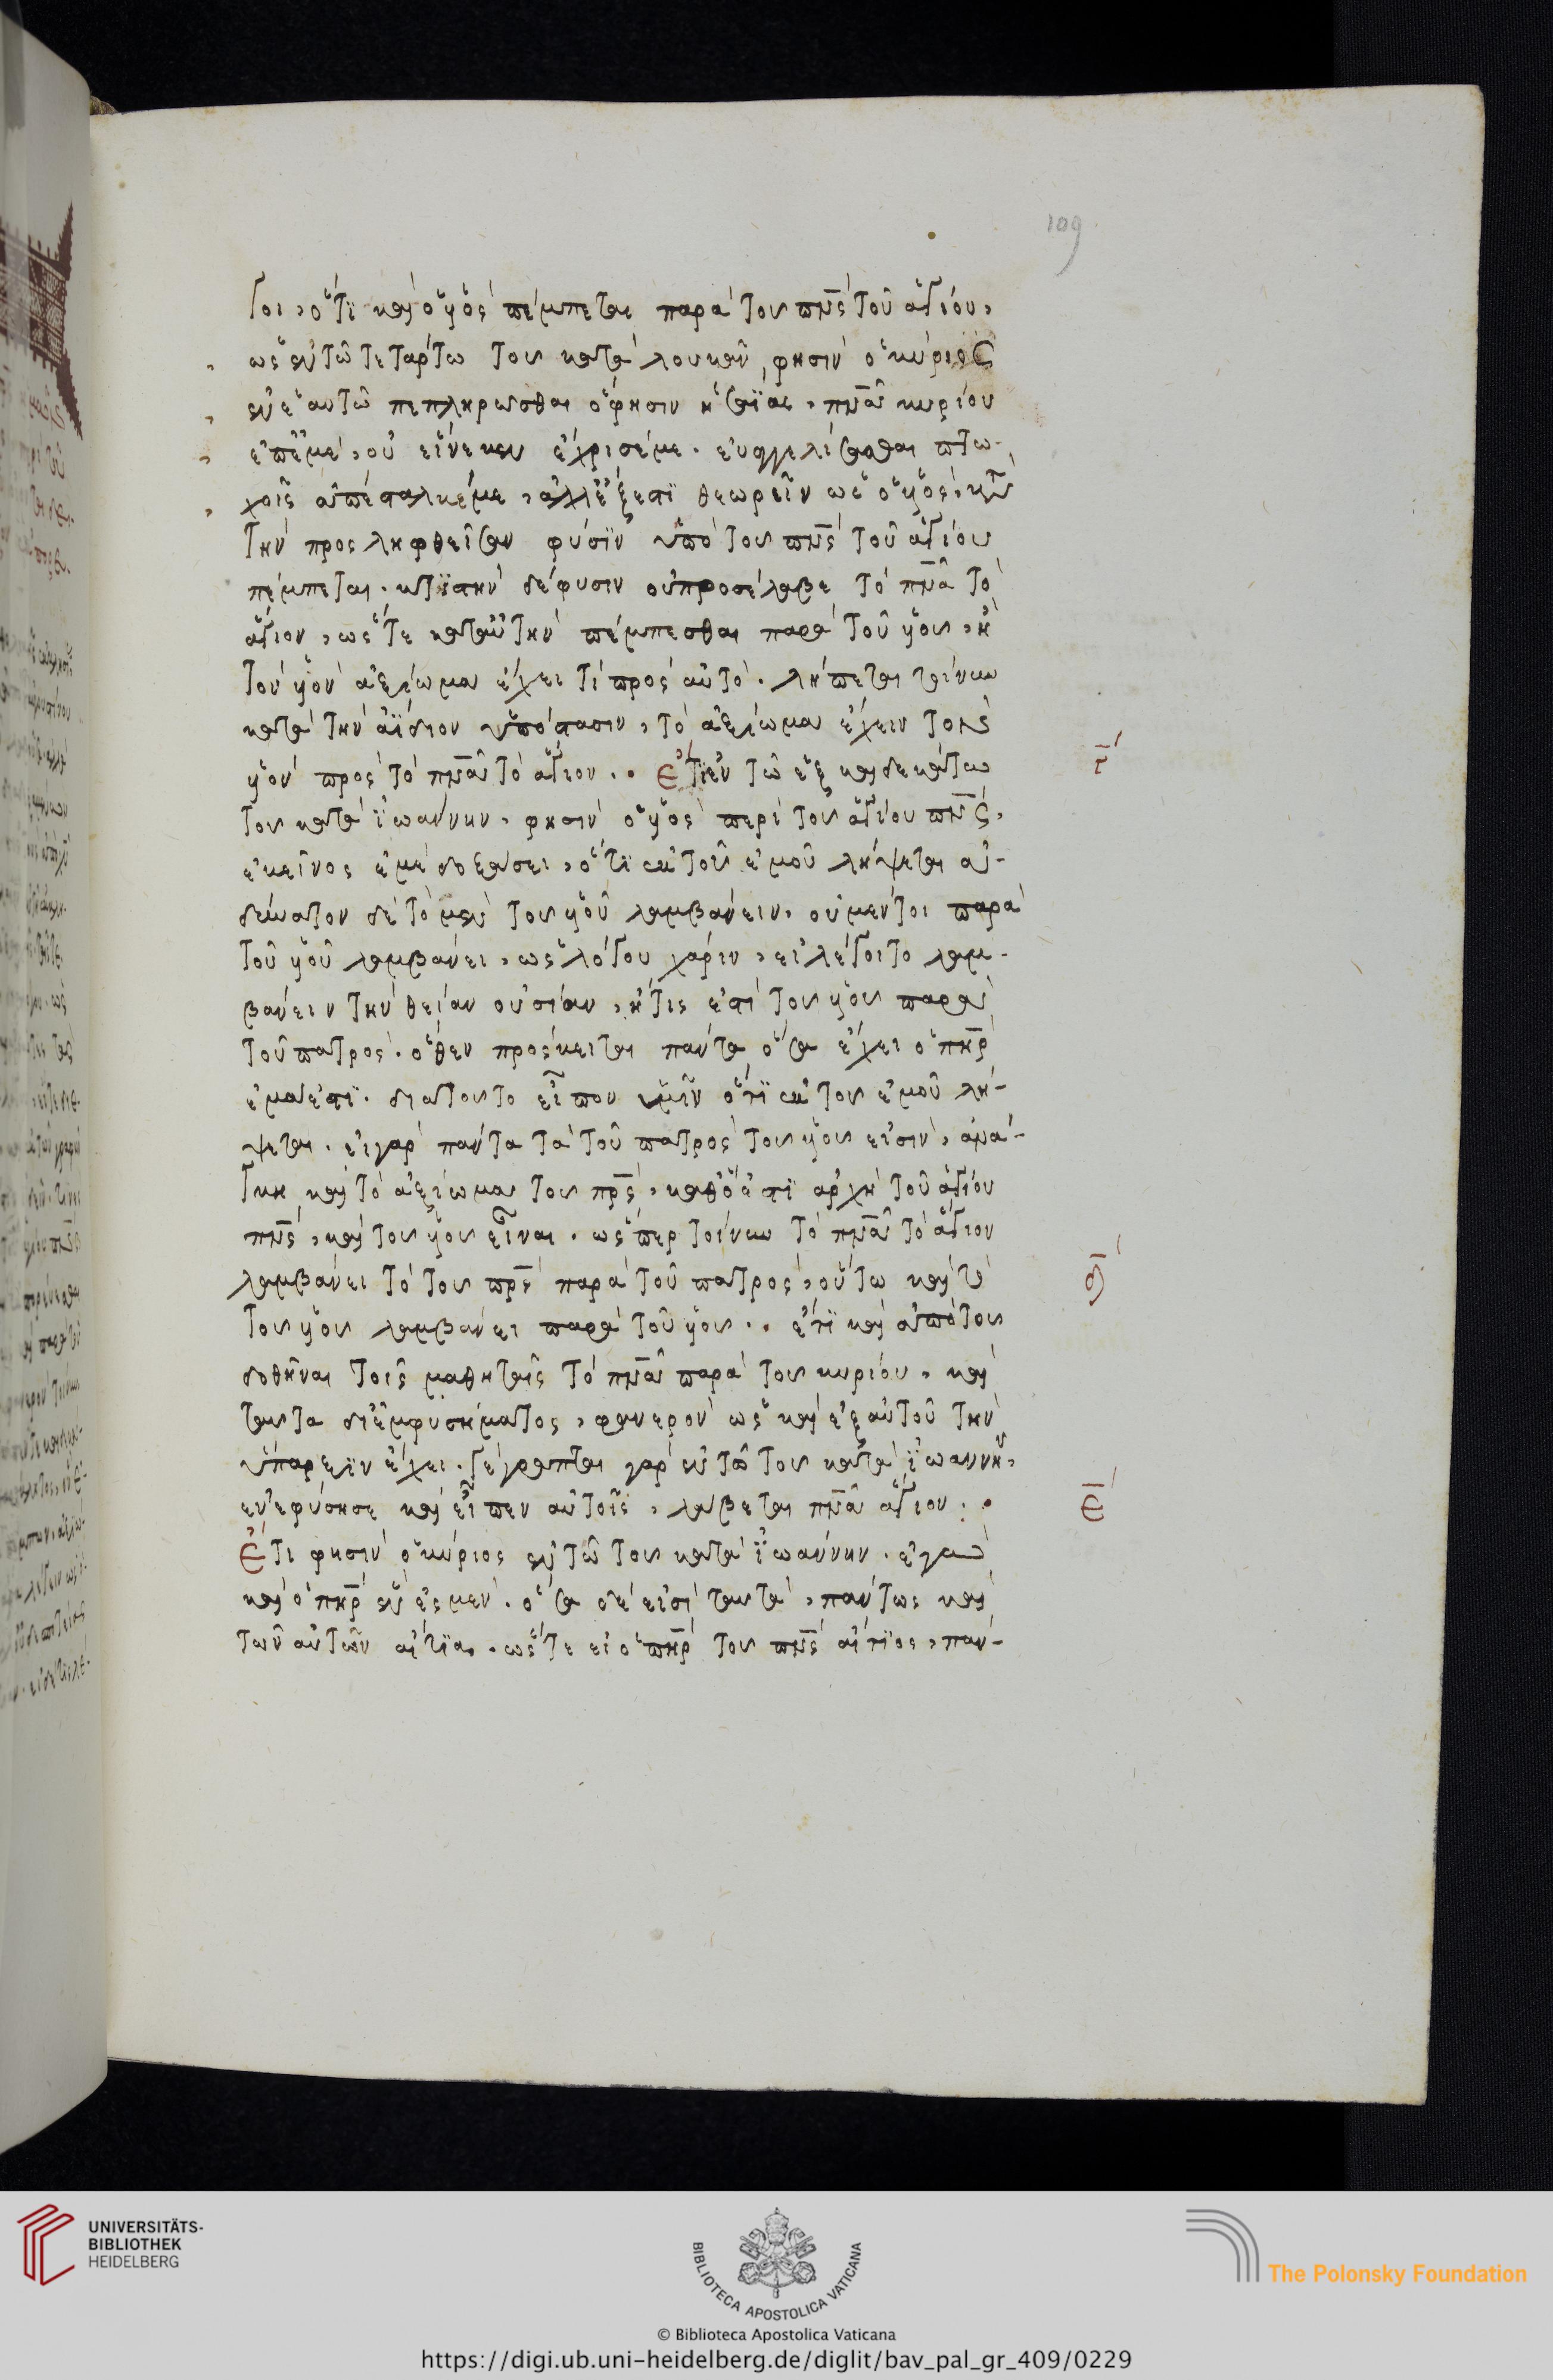 109
γοι, ὅτι καὶ ὁ υἱὸς πέμπεται παρὰ τοῦ πν̅ς τοῦ ἁγίου,
ὡς ἐν τῶ τετάρτω τοῦ κατὰ λουκᾶν, φησὶν ὁ κύριος
ἐν ἑαυτῶ πεπληρῶσθαι ὅ φησιν ἡσαΐας, πν̅α κυρίου
ἐπ' ἐμὲ, οὗ εἵνεκεν ἔχρισέ με. εὐαγγελίσασθαι πτω-
χοῖς ἀπέσταλκέ με, ἀλλ' ἔξεστι θεωρεῖν ὡς ὁ υἱὸς, κατὰ
τὴν προσληφθεῖσαν φύσιν ὑπὸ τοῦ πν̅ς τοῦ ἁγίου
πέμπεται. κτιστὴν δὲ φύσιν οὐ προσέλαβε τὸ πν̅α τὸ
ἅγιον, ὥστε κατ' αὐτὴν πέμπεσθαι παρὰ τοῦ υἱοῦ, ἢ
τὸν υἱὸν ἀξίωμα ἔχει τί πρὸς αὐτό. λείπεται τοίνυν
κατὰ τὴν ἀΐδιον ὑπόστασιν, τὸ ἀξίωμα ἔχειν τὸν
υἱὸν πρὸς τὸ πν̅α τὸ ἅγιον.. Ἔτι ἐν τῶ ἑξκαιδεκάτω
τοῦ κατὰ ἰωάννην, φησὶν ὁ υἱὸς περὶ τοῦ ἁγίου πν̅ς,
ἐκεῖνος ἐμὲ δοξάσει, ὅτι ἐκ τοῦ ἐμοῦ λήψεται ἀ-
δύνατον δὲ τὸ μὲν τοῦ υἱοῦ λαμβάνειν, οὐ μέντοι παρὰ
τοῦ υἱοῦ λαμβάνει, ὡς λόγου χάριν, εἰ λέγοιτο λαμ-
βάνειν τὴν θείαν οὐσίαν, ἥτις ἐστὶ τοῦ υἱοῦ παρὰ
τοῦ πατρὸς. ὅθεν πρόσκειται πάντα ὅσα ἔχει ὁ πη̅ρ
ἐμά ἐστι. διατοῦτο εἶπον ὑμῖν ὅτι ἐκ τοῦ ἐμοῦ λή-
ψεται. εἰ γὰρ πάντα τὰ τοῦ πατρὸς τοῦ υἱοῦ εἰσὶν, ἀνά-
γκη καὶ τὸ ἀξίωμα τοῦ πρ̅ς, καθό ἐστι ἀρχὴ τοῦ ἁγίου
πν̅ς, καὶ τοῦ υἱοῦ εἶναι. ὥσπερ τοίνυν τὸ πν̅α τὸ ἅγιον
λαμβάνει τὸ τοῦ πρ̅ς παρὰ τοῦ πατρὸς, οὕτω καὶ τὸ
τοῦ υἱοῦ λαμβάνει παρὰ τοῦ υἱοῦ.. ἔτι καὶ ἀπὸ τοῦ
δοθῆναι τοῖς μαθηταῖς τὸ πν̅α παρὰ τοῦ κυρίου, καὶ
ταῦτα δι' ἐμφυσήματος, φανερὸν ὡς καὶ ἐξ αὐτοῦ τὴν
ὕπαρξιν ἔχει. γέγραπται γὰρ ἐν τῶ τοῦ κατὰ ἰωάννην,
ἐνεφύσησε καὶ εἶπεν αὐτοῖς, λάβεται πν̅α ἅγιον..
Ἔτι φησὶν ὁ κύριος ἐν τῶ τοῦ κατὰ ἰωάννην. ἐγὼ
καὶ ὁ πη̅ρ ἕν ἐσμεν. ὅσα δέ εἰσι ταυτὰ, πάντως καὶ
τῶν αὐτῶν αἰτία. ὥστε εἰ ὁ πη̅ρ τοῦ πν̅ς αἴτιος, παν-
ε̅
UNIVERSITÄTS-
BIBLIOTHEK
HEIDELBERG
BIBLIOTECA APOSTOLICA VATICANA
The Polonsky Foundation
© Biblioteca Apostolica Vaticana
https://digi.ub.uni-heidelberg.de/diglit/bav_pal_gr_409/0229